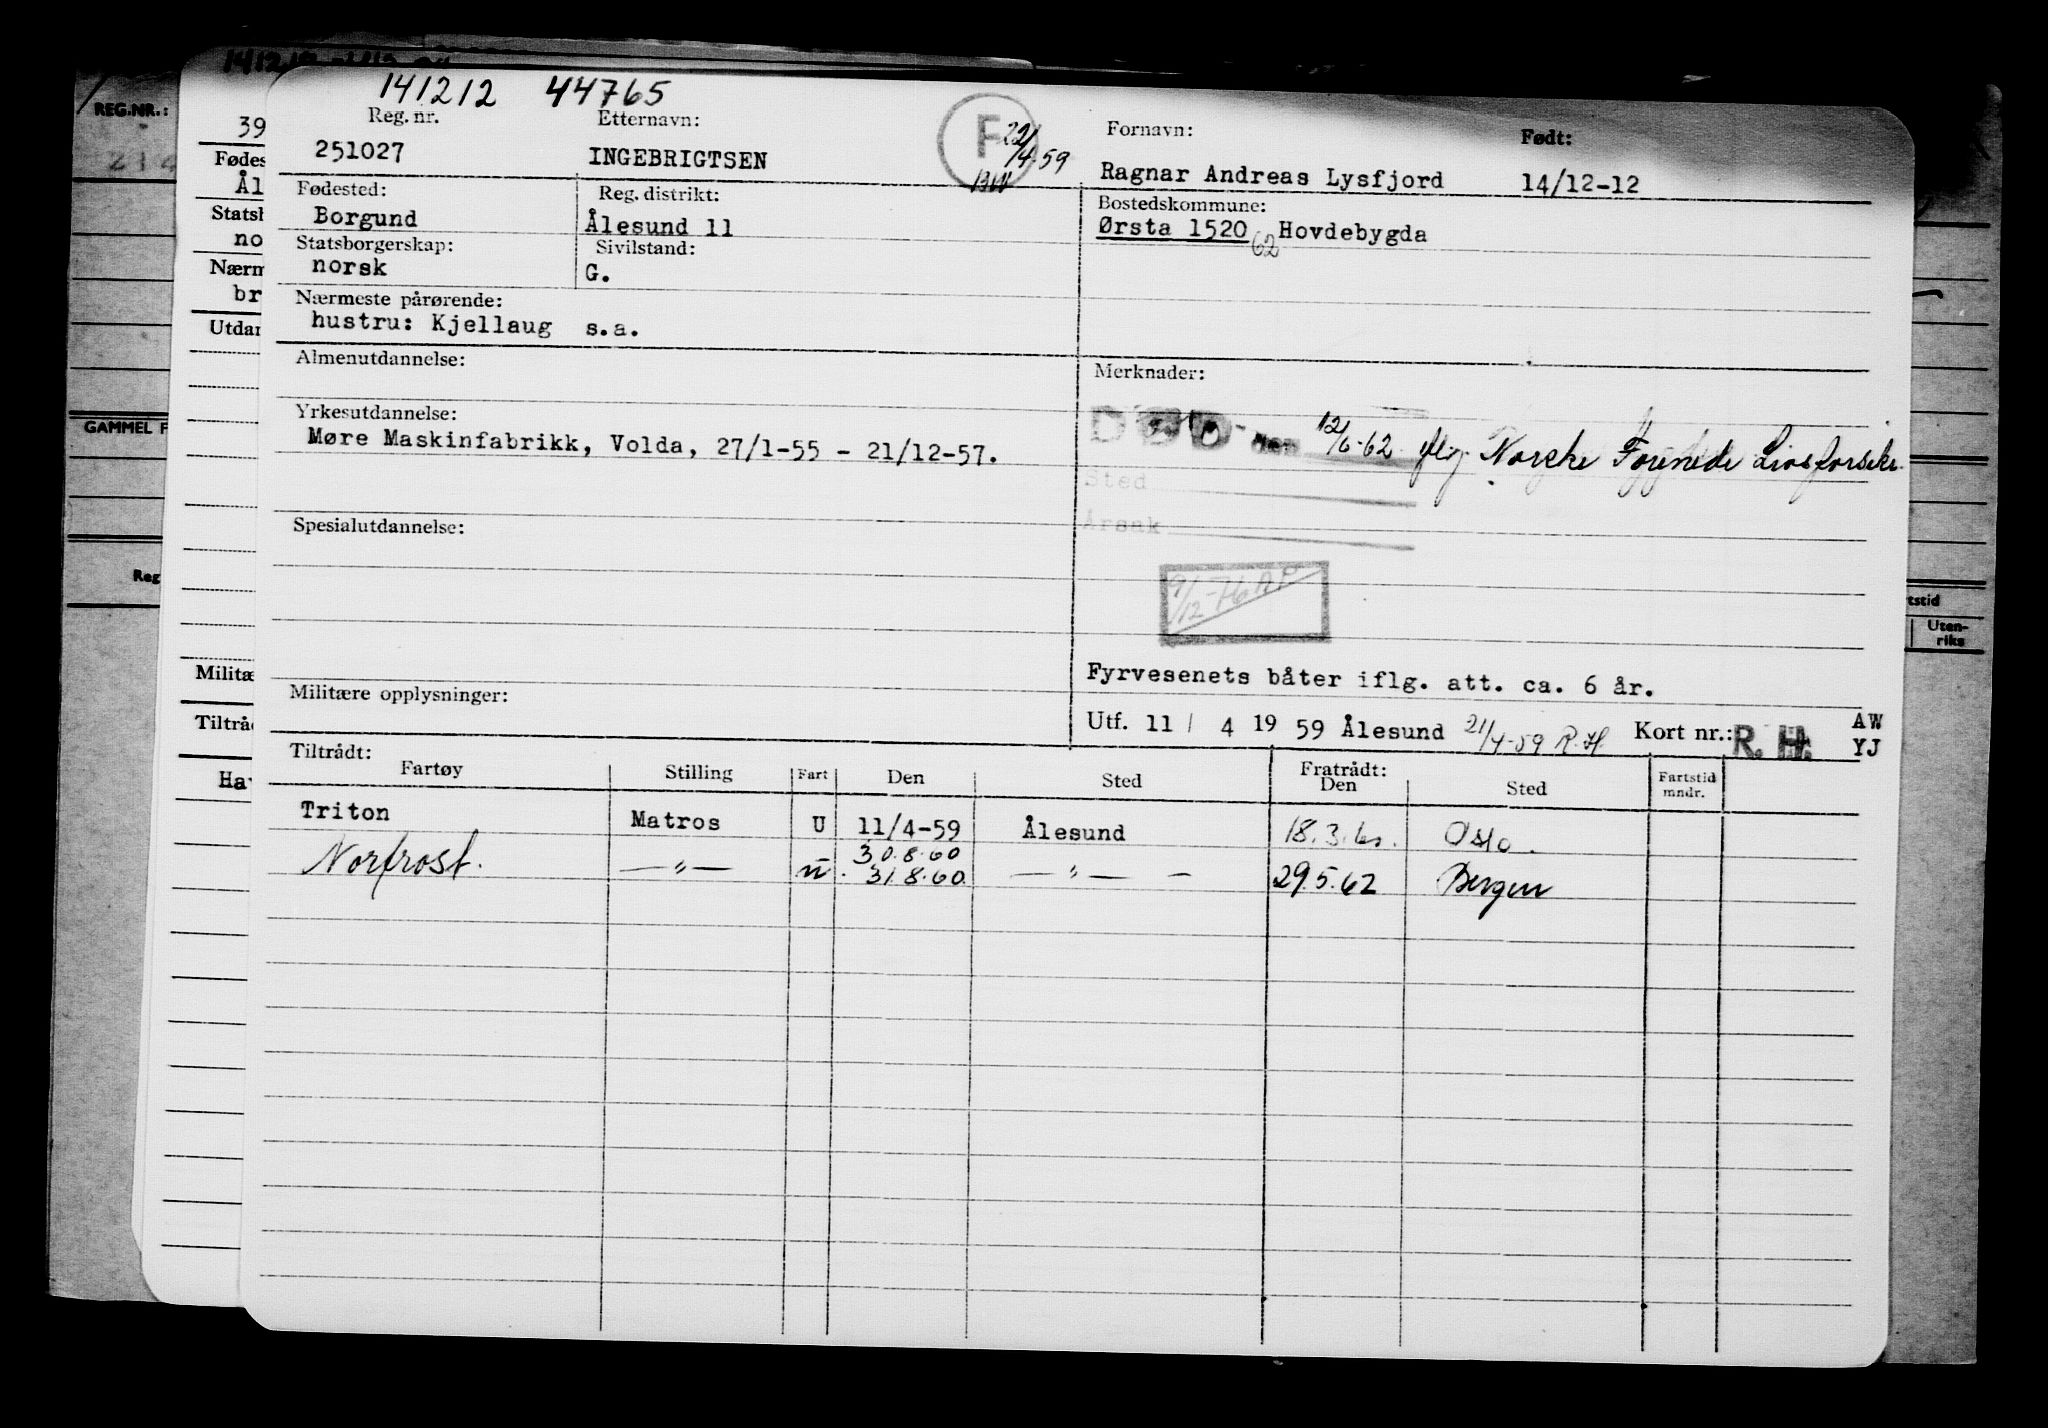 141212 44765
REG.NR.:
Reg. nr. Etternavn: Fornavn: Født:
39
251027 INGEBRIGTSEN F 22/4-59 Ragnar Andreas Lysfjord 14/12-12
Fødes
Ål
Fødested: Reg. distrikt: Bostedskommune:
Borgund Ålesund 11 Ørsta 1520 62 Hovdebygda
Statsb
no
Statsborgerskap: Sivilstand:
norsk G.
Nærm
br
Nærmeste pårørende:
hustru: Kjellaug s.a.
Utdan
Almenutdannelse: Merknader:
GAMMEL F
Yrkesutdannelse:
Møre Maskinfabrikk, Volda, 27/1-55 - 21/12-57.
DØD den 12/6-62 iflg. Norske Forenede Livsforsikr.
Sted
Årsak
Spesialutdannelse:
Reg
9/12-76 AP
rtstid
Uten-
riks
Militæ
Fyrvesenets båter iflg. att. ca. 6 år.
Militære opplysninger:
Utf. 11 / 4 19 59 Ålesund 21/4-59 R.H. Kort nr.: R. H. AW
YJ
Tiltråd
Tiltrådt: Fratrådt:
Hav
Fartøy Stilling Fart Den Sted Den Sted Fartstid mndr.
Triton Matros U 11/4-59 Ålesund 18.3.60. Oslo.
30.8.60
Norfrost. —"— u. 31.8.60. —"— - 29.5.62 Bergen